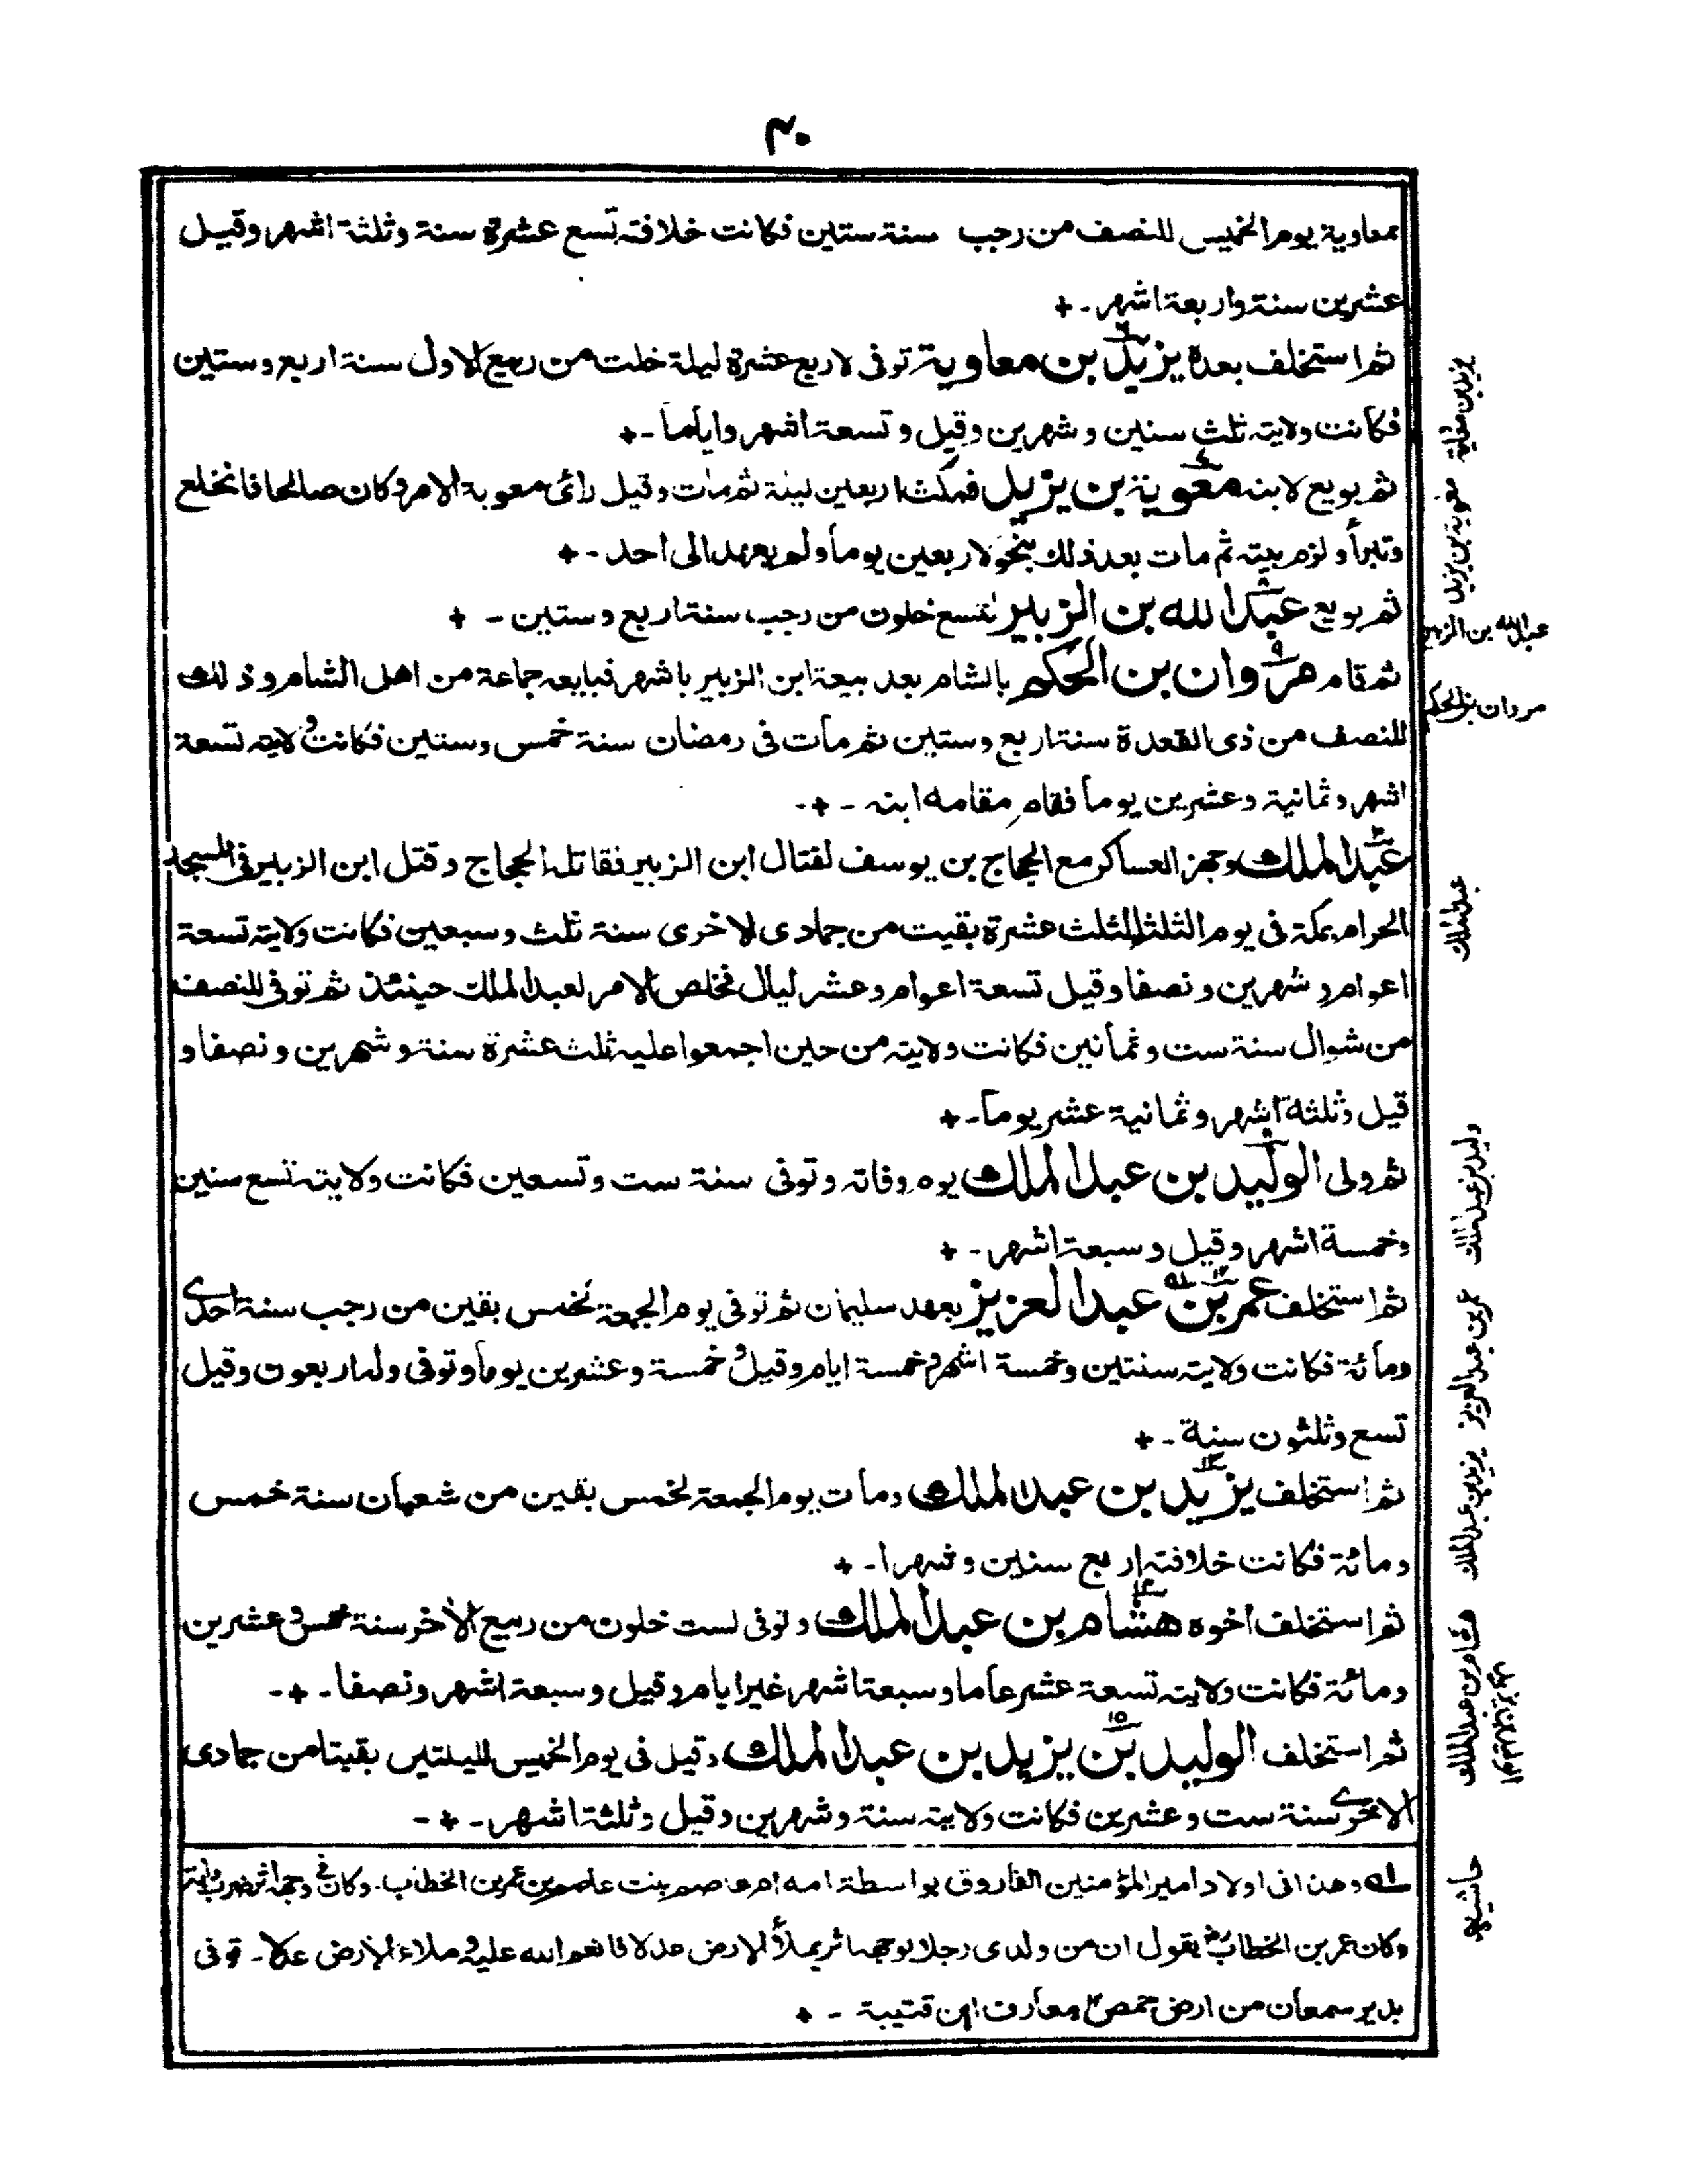 ٤٠
معاوية يوم الخميس للنصف من رجب سنة ستين فكانت خلافته تسع عشرة سنة وثلثة اشهر وقيل
عشرين سنة واربعة اشهر ـ +
ثم استخلف بعده يزيد بن معاوية توفى لاربع عشرة ليلة خلت من ربيع الاول سنة اربع وستين
فكانت ولايته ثلث سنين وشهرين وقيل وتسعة اشهر واياما ـ +
ثم بويع لابنه معوية بن يزيد فمكث اربعين ليلة ثم مات وقيل رائ معوية الامر وكان صالحا فانخلع
وتبرأ ولزم بيته ثم مات بعد ذلك بنحو لاربعين يوما ولم يعهد الى احد ـ +
ثم بويع عبد الله بن الزبير لتسع خلون من رجب سنة اربع وستين ـ +
ثم قام مروان بن الحكم بالشام بعد بيعة ابن الزبير باشهر فبايعه جماعة من اهل الشام وذلك
للنصف من ذى القعدة سنة اربع وستين ثم مات فى رمضان سنة خمس وستين فكانت ولايته تسعة
اشهر وثمانية وعشرين يوما فقام مقامه ابنه ـ +ـ
عبد الملك وجهز العساكر مع الحجاج بن يوسف لقتال ابن الزبير فقاتله الحجاج وقتل ابن الزبير فى المسجد
الحرام بمكة فى يوم الثلثا لثلث عشرة بقيت من جمادى الاخرى سنة ثلث وسبعين فكانت ولايته تسعة
اعوام وشهرين ونصفا وقيل تسعة اعوام وعشر ليال فخلص الامر لعبد الملك حينئذ ثم توفى للنصف
من شوال سنة ست وثمانين فكانت ولايته من حين اجمعوا عليه ثلث عشرة سنة وشهرين ونصفا و
قيل وثلثة اشهر وثمانية عشر يوما ـ +
ثم ولى الوليد بن عبد الملك يوم وفاته وتوفى سنة ست وتسعين فكانت ولايته تسع سنين
وخمسة اشهر وقيل وسبعة اشهر ـ +
ثم استخلف عمر بن عبد العزيز بعهد سليمان ثم توفى يوم الجمعة لخمس بقين من رجب سنة احدى
ومائة فكانت ولايته سنتين وخمسة اشهر وخمسة ايام وقيل وخمسة وعشرين يوما وتوفى وله اربعون وقيل
تسع وثلثون سنة ـ +
ثم استخلف يزيد بن عبد الملك ومات يوم الجمعة لخمس بقين من شعبان سنة خمس
ومائة فكانت خلافته اربع سنين وشهرا ـ +
ثم استخلف اخوه هشام بن عبد الملك وتوفى لست خلون من ربيع الأخر سنة خمس وعشرين
ومائة فكانت ولايته تسعة عشر عاما وسبعة اشهر غير ايام وقيل وسبعة اشهر ونصفا ـ +ـ
ثم استخلف الوليد بن يزيد بن عبد الملك وقيل فى يوم الخميس لليلتين بقيتا من جمادى
الاخرى سنة ست وعشرين فكانت ولايته سنة وشهرين وقيل وثلثة اشهر ـ +ـ
له وهذا فى اولاد امير المؤمنين الفاروق بواسطة امه ام عاصم بنت عاصم بن عمر بن الخطاب. وكان فى وجهه اثر ضرب
وكان عمر بن الخطاب يقول ان من ولدى رجلا بوجهه اثر يملأ الارض عدلا فانعم الله عليه وملاء الارض عدلا ـ توفى
بدير سمعان من ارض حمص معارف ابن قتيبة ـ +
يزيد بن معاوية
معوية بن يزيد
عبد الله بن الزبير
مروان بن الحكم
عبد الملك
وليد بن عبد الملك
عمر بن عبد العزيز
يزيد بن عبد الملك
هشام بن عبد الملك
حاشيه